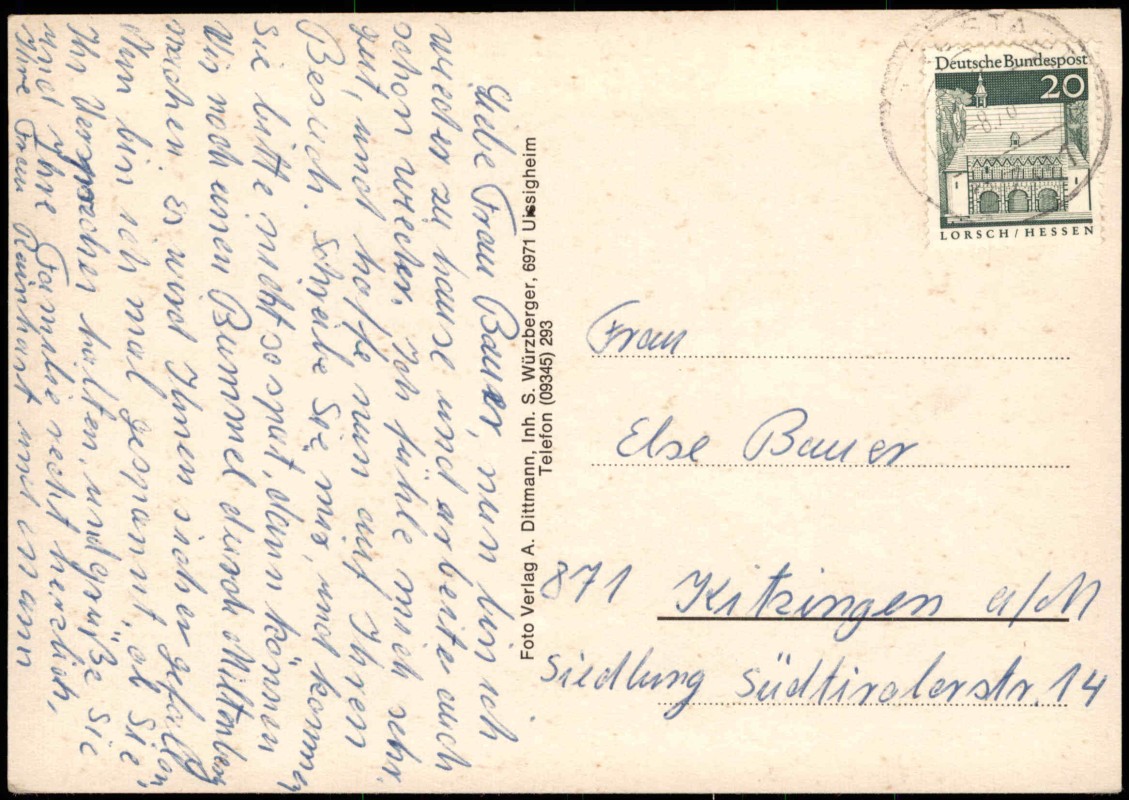 Liebe Frau Bauer, nun bin ich
wieder zu hause und arbeite auch
schon wieder. Ich fühle mich sehr
gut, und hoffe nun auf Ihren
Besuch. Schreibe Sie mir, und kommen
Sie bitte nicht so spät, dann können
Wir noch einen Bummel durch Miltenberg
machen. es wird Ihnen sicher gefallen,
Nun bin ich mal gespannt, ob Sie,
Ihr Versprechen halten, und grüße Sie
und Ihre Familie recht herzlich,
Ihre Frau Reinhart
Foto Verlag A. Dittmann, Inh. S. Würzberger, 6971 Uissigheim
Telefon (09345) 293
Deutsche Bundespost
20
LORSCH/HESSEN
Frau
Else Bauer
871 Kitzingen a/M
Siedlung Südtirolerstr. 14